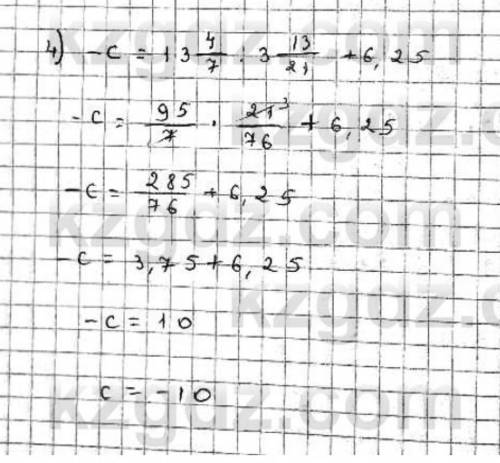 4) -c = 13 4/7 : 3 13/21 + 6,25
-c = 95/7 · 21³/76 + 6,25
-c = 285/76 + 6,25
-c = 3,75 + 6,25
-c = 10
c = -10
kzgdz.com
kzgdz.com
kzgdz.com
kzgdz.com